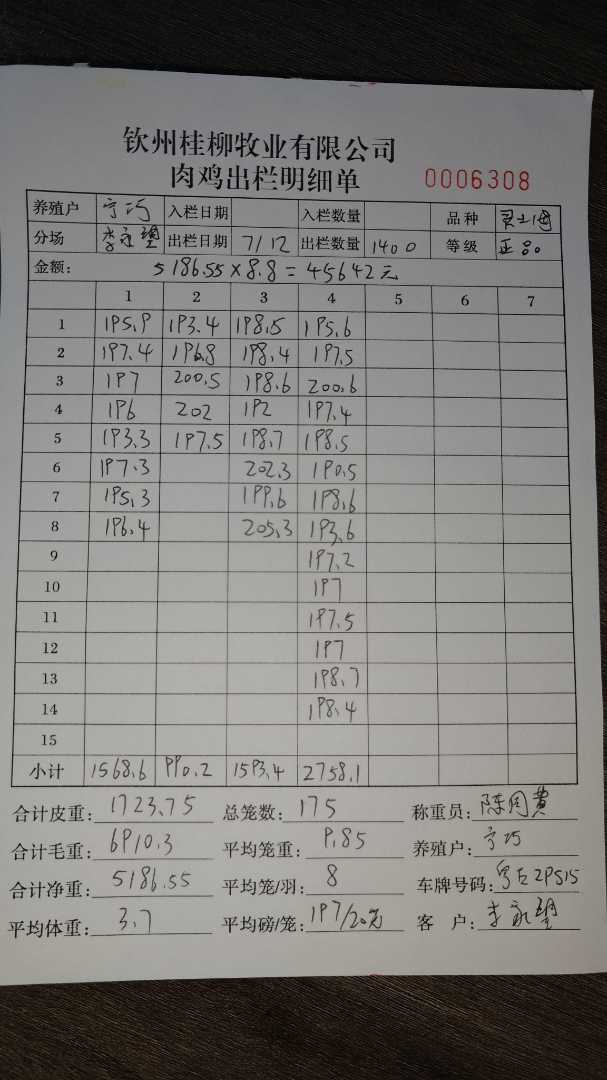 钦州桂柳牧业有限公司
肉鸡出栏明细单 0006308
养殖户 宁巧 入栏日期 入栏数量 品种 灵土
分场 李永 出栏日期 7/12 出栏数量 1400 等级 正品。
金额: 5186.55×8.8=45642元
1 2 3 4 5 6 7
1 195.9 193.4 198.5 195.6
2 197.4 196.8 198.4 197.5
3 197 200.5 198.6 200.6
4 196 202 192 197.4
5 193.3 197.5 198.7 198.5
6 197.3 202.3 190.5
7 195.3 199.6 198.6
8 196.4 205.3 193.6
9 197.2
10 197
11 197.5
12 197
13 198.7
14 198.4
15
小计 1568.6 990.2 1593.4 2758.1
合计皮重: 1723.75 总笼数: 175 称重员: 陈
合计毛重: 6910.3 平均笼重: 9.85 养殖户: 宁巧
合计净重: 5186.55 平均笼/羽: 8 车牌号码:
平均体重: 3.7 平均磅/笼: 197/20 客 户: 李永